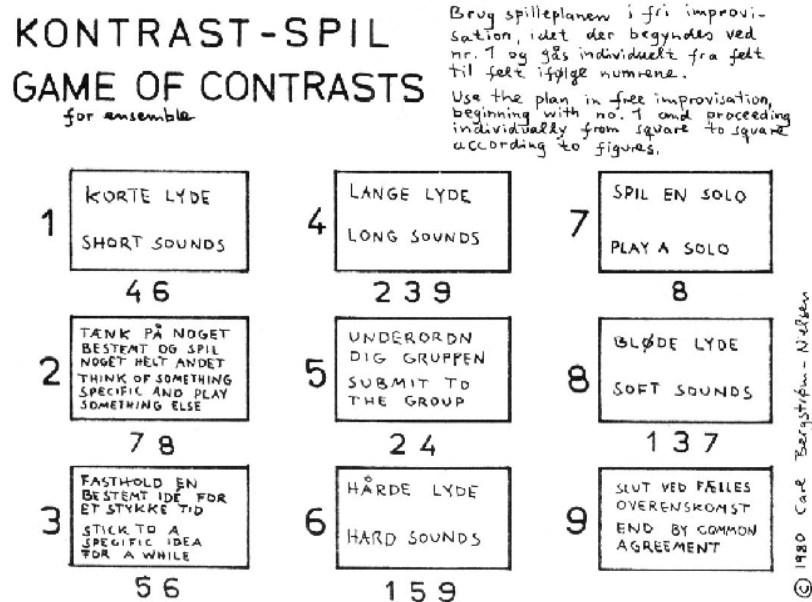 KONTRAST-SPIL
GAME OF CONTRASTS
for ensemble
Brug spilleplanen i fri improvi-
sation, idet der begyndes ved
nr. 1 og gås individuelt fra felt
til felt ifølge numrene.
Use the plan in free improvisation,
beginning with no. 1 and proceeding
individually from square to square
according to figures.
1
KORTE LYDE
SHORT SOUNDS
4 6
2
TÆNK PÅ NOGET
BESTEMT OG SPIL
NOGET HELT ANDET
THINK OF SOMETHING
SPECIFIC AND PLAY
SOMETHING ELSE
7 8
3
FASTHOLD EN
BESTEMT IDÉ FOR
ET STYKKE TID
STICK TO A
SPECIFIC IDEA
FOR A WHILE
5 6
4
LANGE LYDE
LONG SOUNDS
2 3 9
5
UNDERORDN
DIG GRUPPEN
SUBMIT TO
THE GROUP
2 4
6
HÅRDE LYDE
HARD SOUNDS
1 5 9
7
SPIL EN SOLO
PLAY A SOLO
8
8
BLØDE LYDE
SOFT SOUNDS
1 3 7
9
SLUT VED FÆLLES
OVERENSKOMST
END BY COMMON
AGREEMENT
© 1980 Carl Bergstrøm-Nielsen